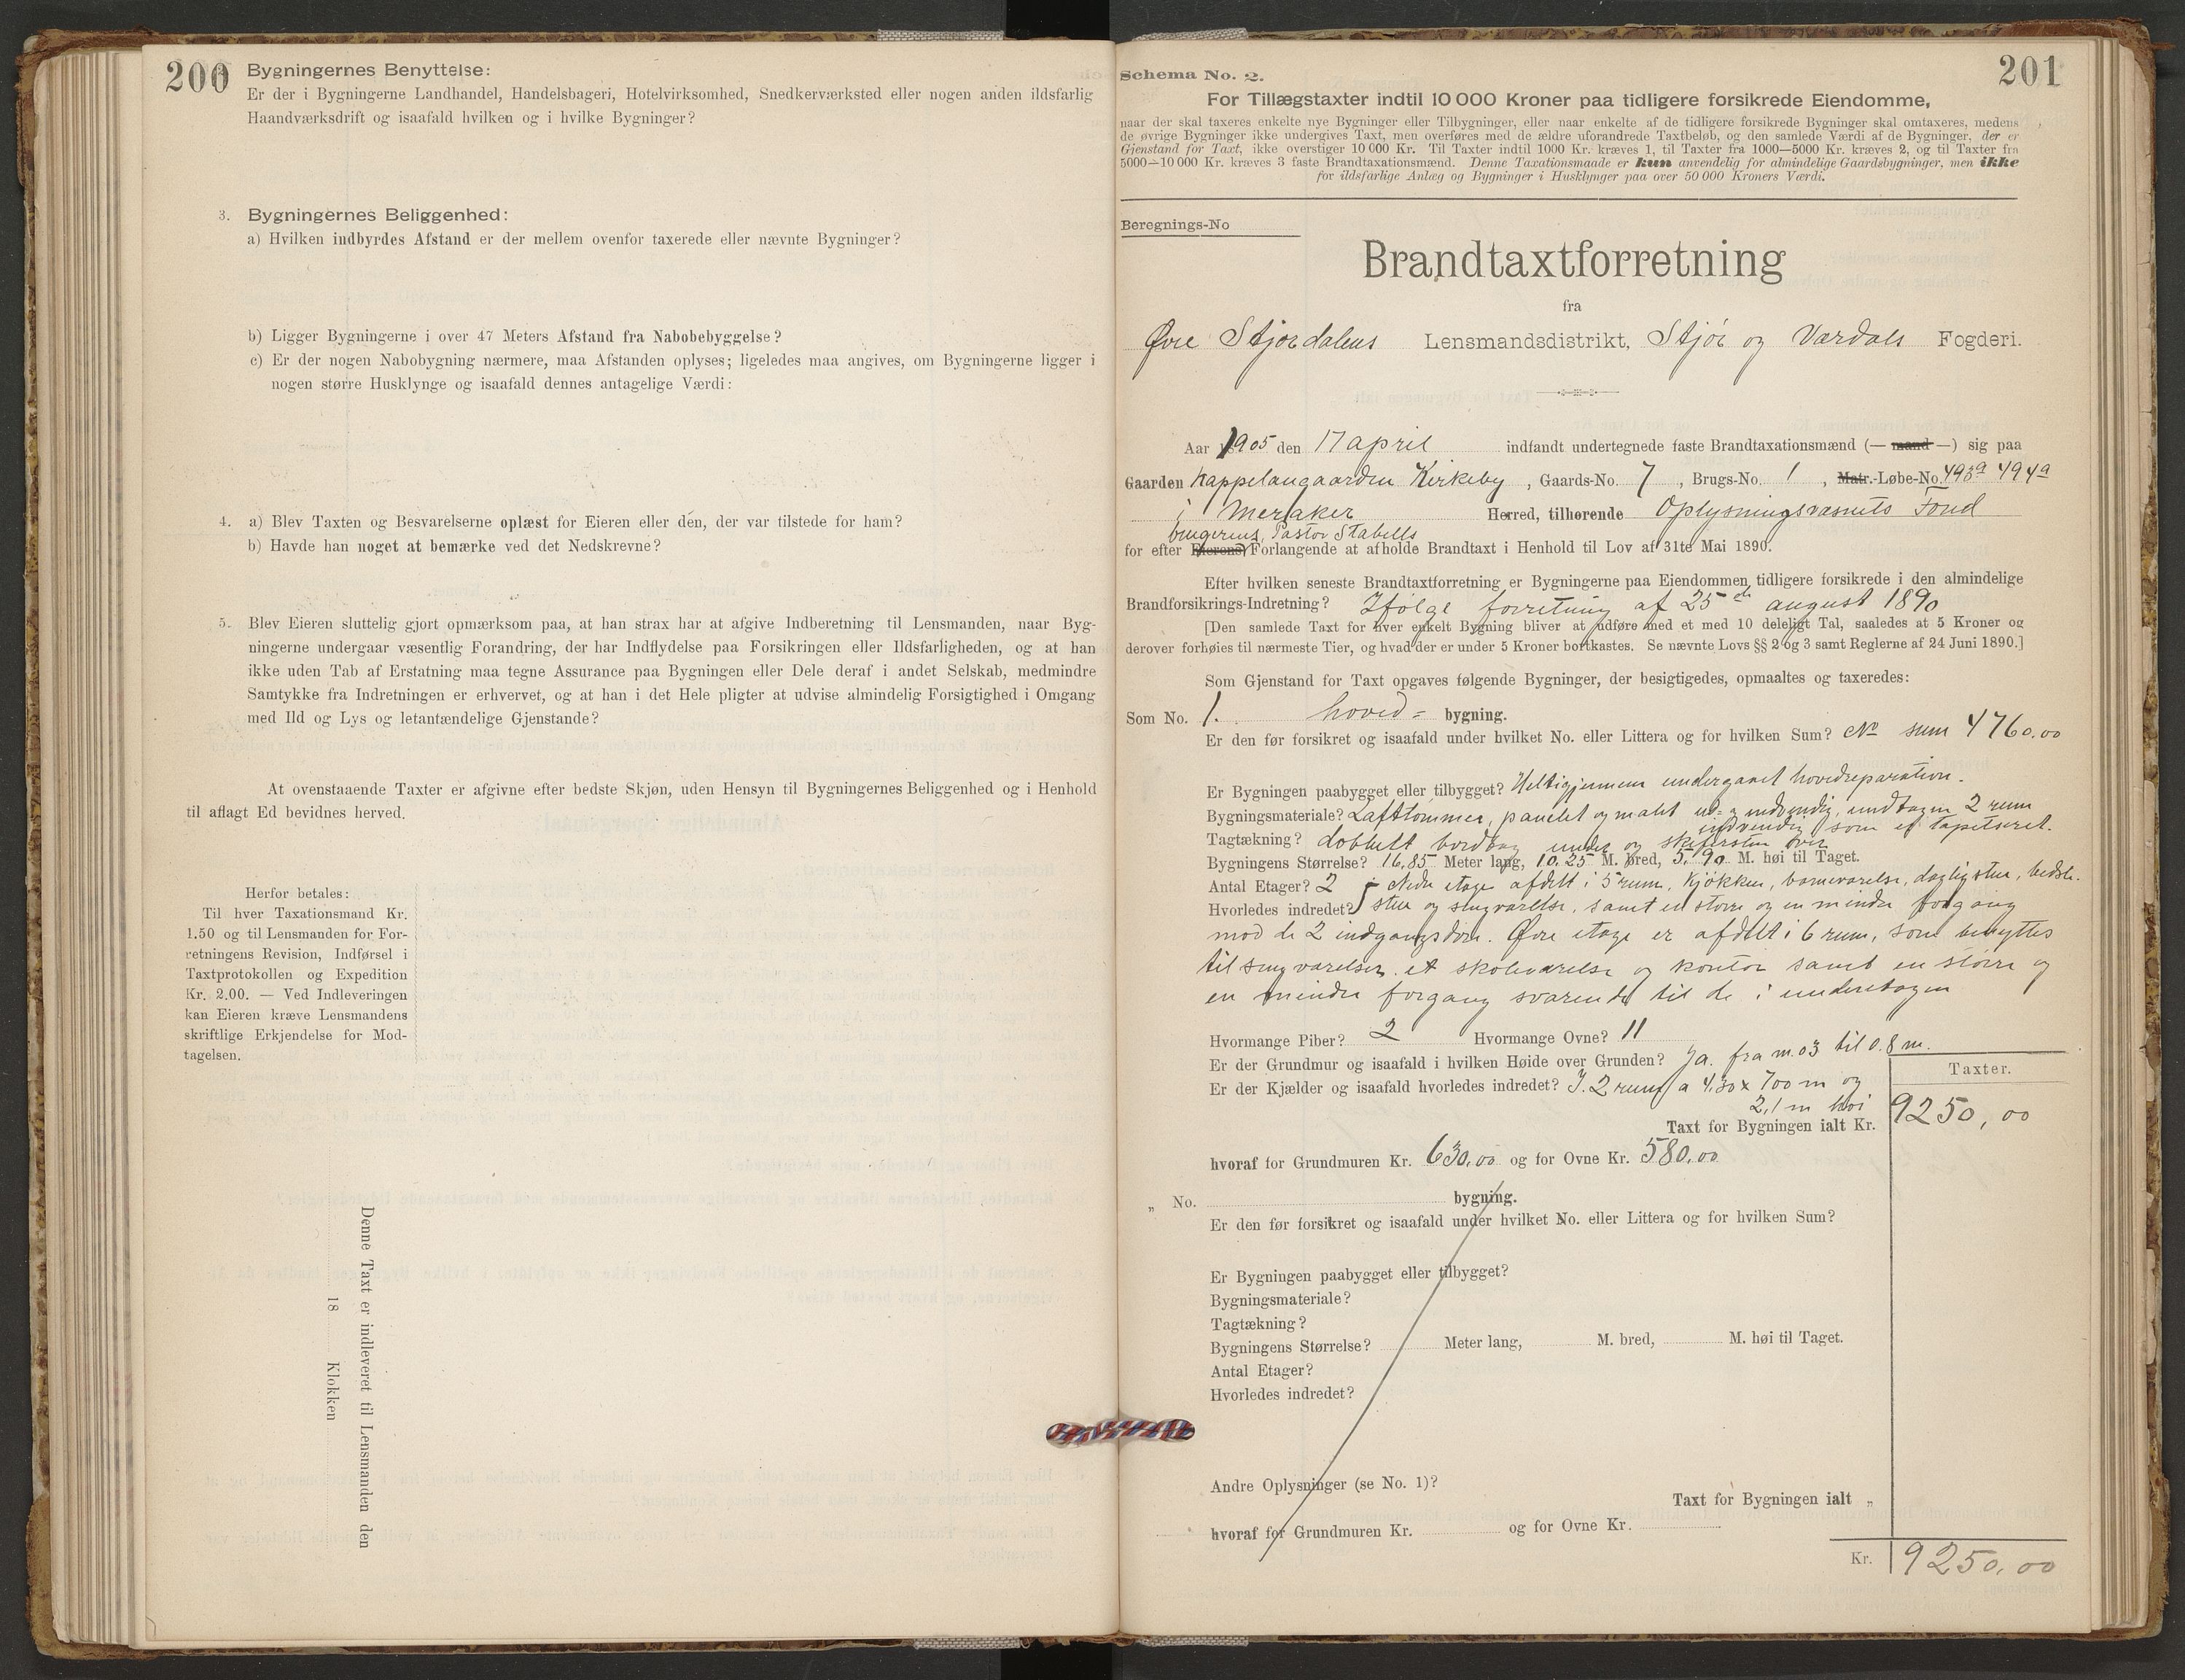 200
Bygningernes Benyttelse:
Er der i Bygningerne Landhandel, Handelsbageri, Hotelvirksomhed, Snedkerværksted eller nogen anden ildsfarlig
Haandværksdrift og isaafald hvilken og i hvilke Bygninger?
3. Bygningernes Beliggenhed:
a) Hvilken indbyrdes Afstand er der mellem ovenfor taxerede eller nævnte Bygninger?
b) Ligger Bygningerne i over 47 Meters Afstand fra Nabobebyggelse?
c) Er der nogen Nabobygning nærmere, maa Afstanden oplyses; ligeledes maa angives, om Bygningerne ligger i
nogen større Husklynge og isaafald dennes antagelige Værdi:
4. a) Blev Taxten og Besvarelserne oplæst for Eieren eller den, der var tilstede for ham?
b) Havde han noget at bemærke ved det Nedskrevne?
5. Blev Eieren sluttelig gjort opmærksom paa, at han strax har at afgive Indberetning til Lensmanden, naar Byg-
ningerne undergaar væsentlig Forandring, der har Indflydelse paa Forsikringen eller Ildsfarligheden, og at han
ikke uden Tab af Erstatning maa tegne Assurance paa Bygningen eller Dele deraf i andet Selskab, medmindre
Samtykke fra Indretningen er erhvervet, og at han i det Hele pligter at udvise almindelig Forsigtighed i Omgang
med Ild og Lys og letantændelige Gjenstande?
At ovenstaaende Taxter er afgivne efter bedste Skjøn, uden Hensyn til Bygningernes Beliggenhed og i Henhold
til aflagt Ed bevidnes herved.
Herfor betales:
Til hver Taxationsmand Kr.
1.50 og til Lensmanden for For-
retningens Revision, Indførsel i
Taxtprotokollen og Expedition
Kr. 2.00. — Ved Indleveringen
kan Eieren kræve Lensmandens
skriftlige Erkjendelse for Mod-
tagelsen.
Denne Taxt er indleveret til Lensmanden den
18 Klokken
201
Schema No. 2.
For Tillægstaxter indtil 10 000 Kroner paa tidligere forsikrede Eiendomme,
naar der skal taxeres enkelte nye Bygninger eller Tilbygninger, eller naar enkelte af de tidligere forsikrede Bygninger skal omtaxeres, medens
de øvrige Bygninger ikke undergives Taxt, men overføres med de ældre uforandrede Taxtbeløb, og den samlede Værdi af de Bygninger, der er
Gjenstand for Taxt, ikke overstiger 10 000 Kr. Til Taxter indtil 1000 Kr. kræves 1, til Taxter fra 1000—5000 Kr. kræves 2, og til Taxter fra
5000—10 000 Kr. kræves 3 faste Brandtaxationsmænd. Denne Taxationsmaade er kun anvendelig for almindelige Gaardsbygninger, men ikke
for ildsfarlige Anlæg og Bygninger i Husklynger paa over 50 000 Kroners Værdi.
Beregnings-No
Brandtaxtforretning
fra
Øvre Stjordalens Lensmandsdistrikt, Stjør og Værdals Fogderi.
Aar 1905 den 17 april indfandt undertegnede faste Brandtaxationsmænd (— mand —) sig paa
Gaarden Kappelangaarden Kirkeby, Gaards-No. 7, Brugs-No. 1, Matr.-Løbe-No. 493a 494a
i Meraker Herred, tilhørende Oplysningsvæsnets Fond
brugerens, Pastor Stabells
for efter Eierens Forlangende at afholde Brandtaxt i Henhold til Lov af 31te Mai 1890.
Efter hvilken seneste Brandtaxtforretning er Bygningerne paa Eiendommen tidligere forsikrede i den almindelige
Brandforsikrings-Indretning? Ifølge forretning af 25de august 1890
[Den samlede Taxt for hver enkelt Bygning bliver at udføre med et med 10 deleligt Tal, saaledes at 5 Kroner og
derover forhøies til nærmeste Tier, og hvad der er under 5 Kroner bortkastes. Se nævnte Lovs §§ 2 og 3 samt Reglerne af 24 Juni 1890.]
Som Gjenstand for Taxt opgaves følgende Bygninger, der besigtigedes, opmaaltes og taxeredes:
Som No. 1. hoved- bygning.
Er den før forsikret og isaafald under hvilket No. eller Littera og for hvilken Sum? No sum 4760.00
Er Bygningen paabygget eller tilbygget? Heltigjennem undergaaet hovedreparation.
Bygningsmateriale? Lafttømmer, panelet og malet ud- og indvendig, undtagen 2 rum
indvendig som er tapetseret.
Tagtækning? dobbelt bordtag under og skifersten over
Bygningens Størrelse? 16.85 Meter lang, 10.25 M. bred, 5.90 M. høi til Taget.
Antal Etager? 2 Nedre etage afdelt i 5 rum, kjøkken, barneværelse, dagligstue, bedste-
Hvorledes indredet? stue og sengværelse, samt en større og en mindre forgang
mod de 2 indgangsdøre. Øvre etage er afdelt i 6 rum, som benyttes
til sengværelser, et skoleværelse og kontor samt en større og
en mindre forgang svarende til de i underetagen
Hvormange Piber? 2 Hvormange Ovne? 11
Er der Grundmur og isaafald i hvilken Høide over Grunden? Ja. fra m. 03 til 0.8 m.
Er der Kjælder og isaafald hvorledes indredet? J. 2 rum a 4,30 x 700 m og
2,1 m høi
Taxter.
Taxt for Bygningen ialt Kr. 9250,00
hvoraf for Grundmuren Kr. 630,00 og for Ovne Kr. 580,00
„ No. bygning.
Er den før forsikret og isaafald under hvilket No. eller Littera og for hvilken Sum?
Er Bygningen paabygget eller tilbygget?
Bygningsmateriale?
Tagtækning?
Bygningens Størrelse? Meter lang, M. bred, M. høi til Taget.
Antal Etager?
Hvorledes indredet?
Andre Oplysninger (se No. 1)?
Taxt for Bygningen ialt „
hvoraf for Grundmuren Kr. og for Ovne Kr.
Kr. 9250,00